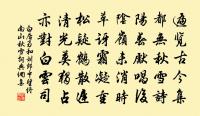 遍覽古今集
都無秋雪詩
陽春先唱後
陰嶺未消時
草訝霜凝重
松疑鶴散遲
清光莫獨占
亦對白雲司
白居易和劉郎中望終
南山秋雪詞典網詩